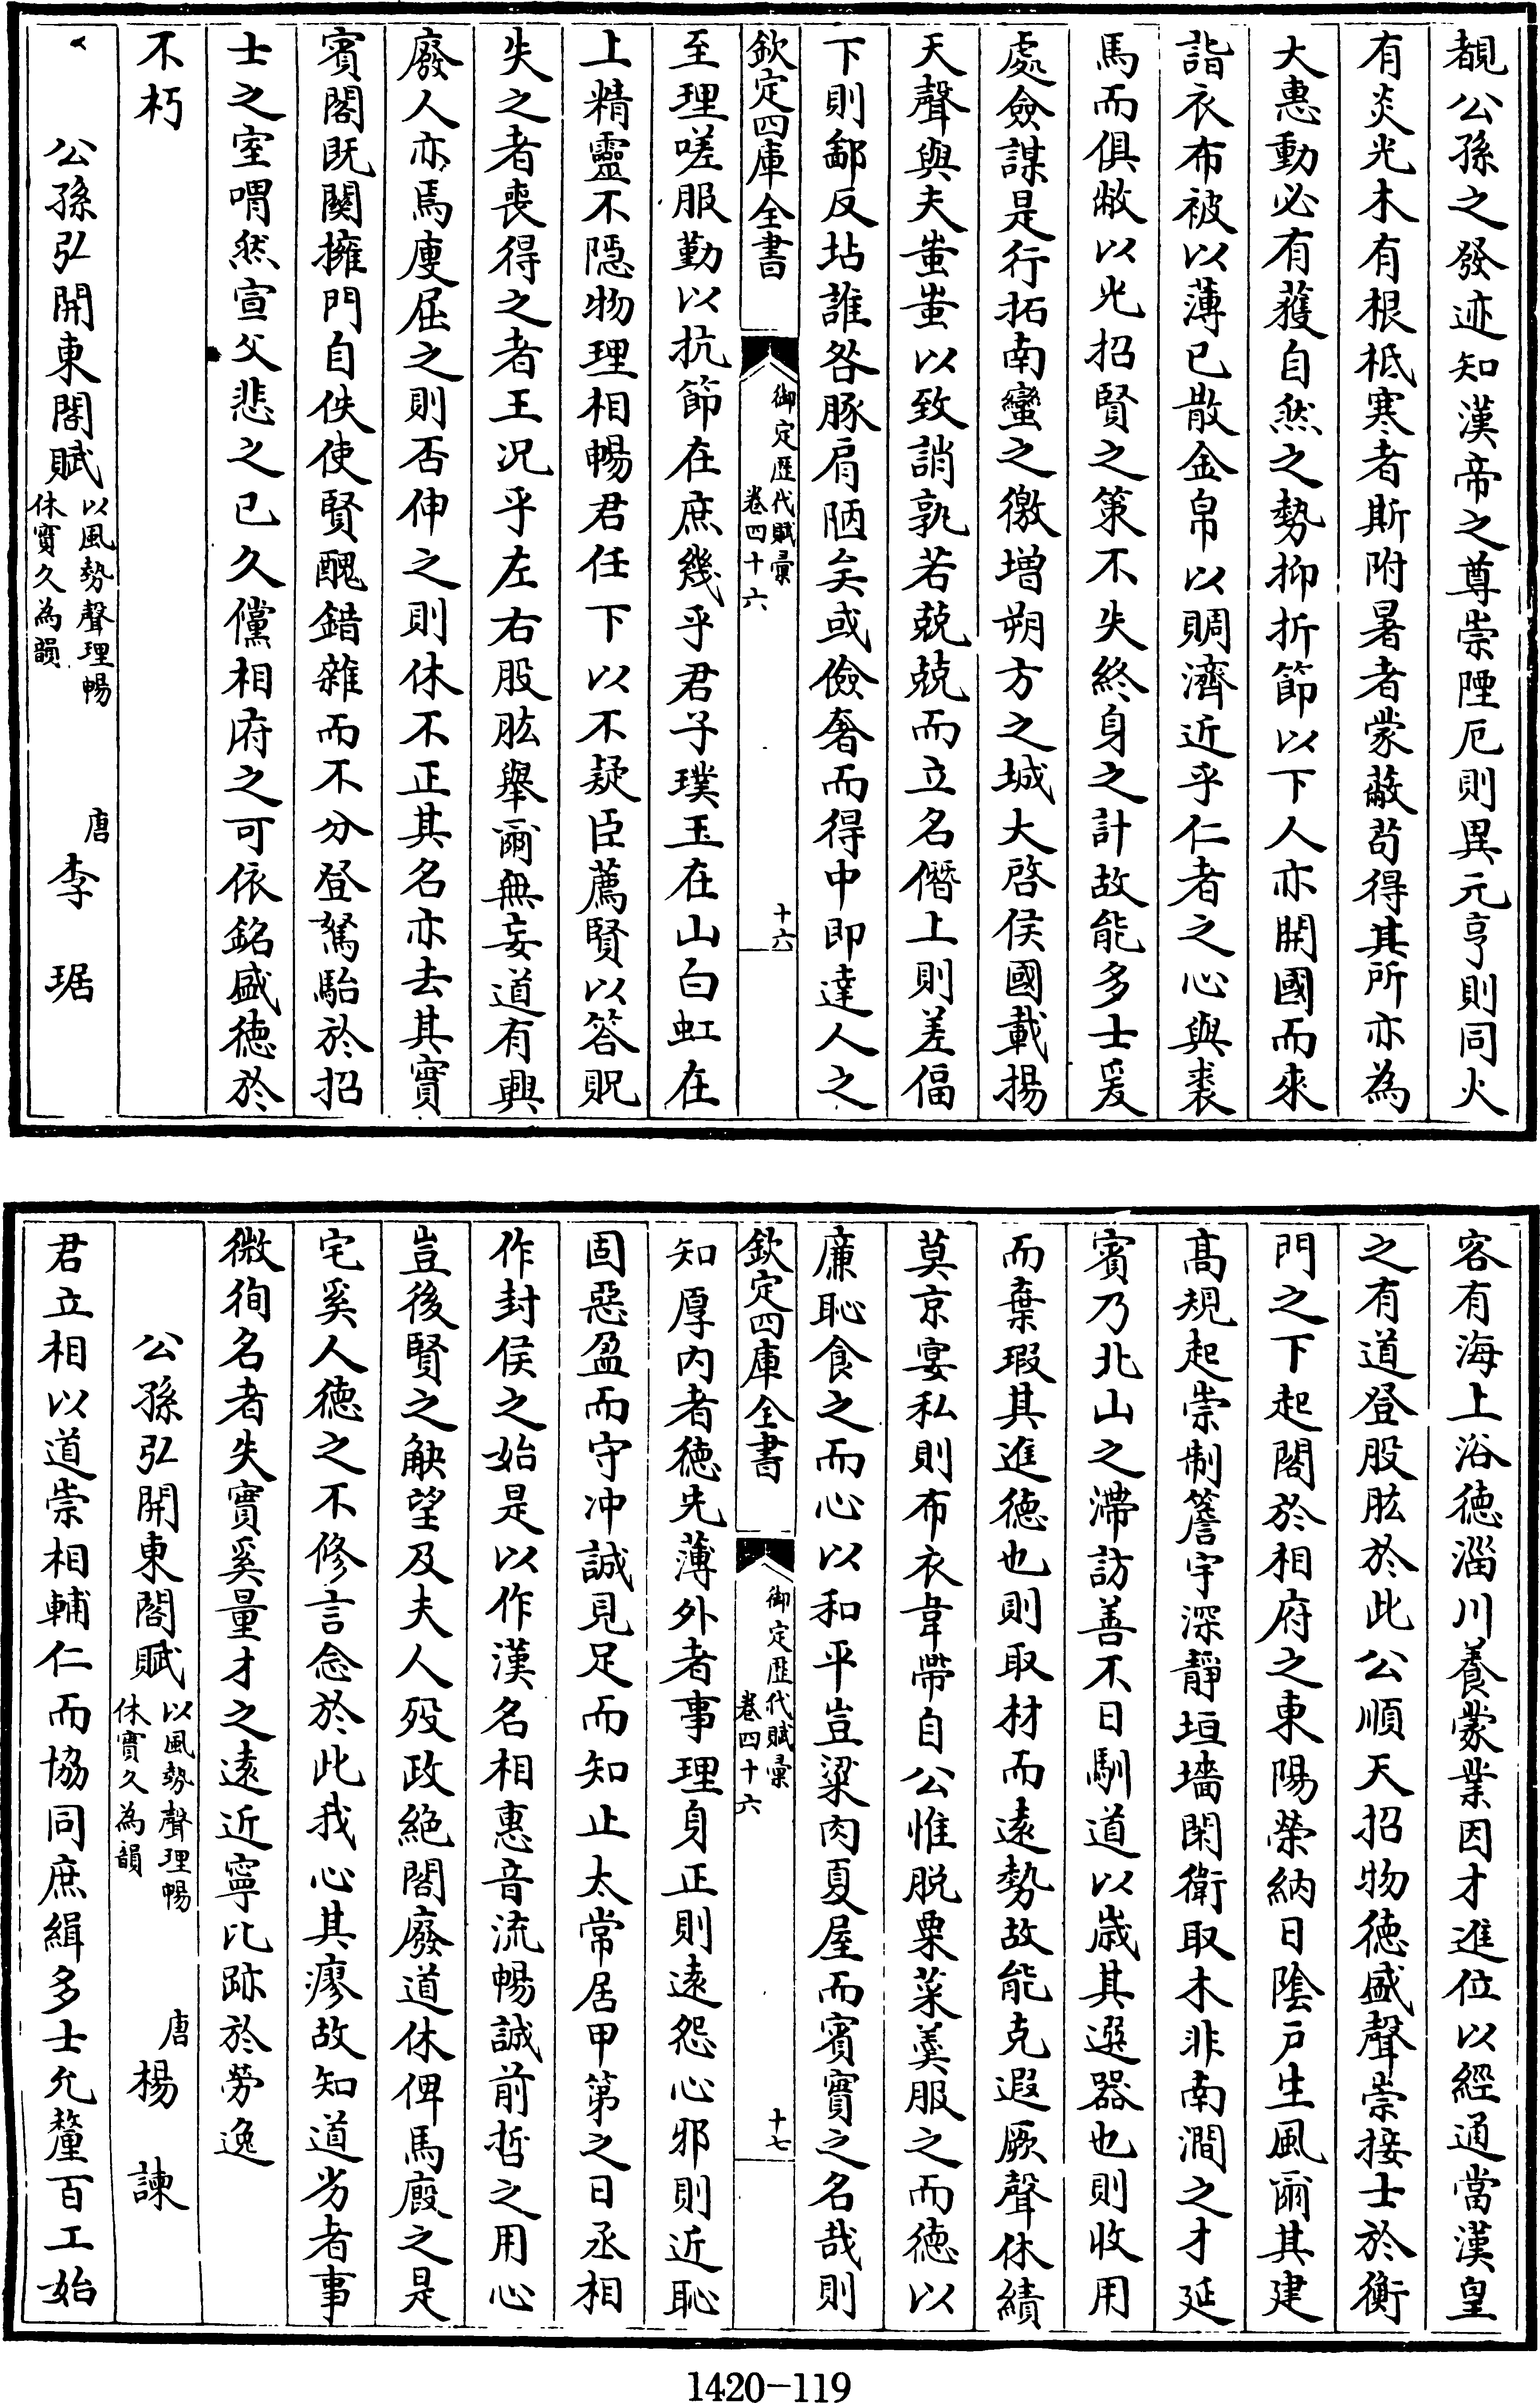 覩公孫之發迹知漢帝之尊崇陻厄則異元亨則同火
有炎光木有根柢寒者斯附暑者蒙蔽苟得其所亦為
大惠動必有獲自然之勢抑折節以下人亦開國而來
詣衣布被以薄已散金帛以賙濟近乎仁者之心與裘
馬而俱敝以光招賢之策不失終身之計故能多士爰
處僉謀是行拓南蠻之徼增朔方之城大啓侯國載揚
天聲與夫蚩蚩以致誚孰若兢兢而立名僭上則差偪
下則鄙反坫誰咎豚肩陋矣或儉奢而得中即達人之
欽定四庫全書
御定歷代賦彙
卷四十六
十六
至理嗟服勤以抗節在庶幾乎君子璞玉在山白虹在
上精靈不隱物理相暢君任下以不疑臣薦賢以答貺
失之者喪得之者王况乎左右股肱舉爾無妄道有興
廢人亦焉廋屈之則否伸之則休不正其名亦去其實
賓閣既闋擁門自佚使賢醜錯雜而不分登駑駘於招
士之室喟然宣父悲之已久儻相府之可依銘盛德於
不朽
公孫弘開東閣賦
以風勢聲理暢
休實久為韻
唐
李琚
客有海上浴德淄川養蒙業因才進位以經通當漢皇
之有道登股肱於此公順天招物德盛聲崇接士於衡
門之下起閣於相府之東陽榮納日陰戶生風爾其建
高規起崇制簷宇深靜垣墻閑衛取木非南澗之才延
賓乃北山之滯訪善不日馴道以歲其選器也則收用
而棄瑕其進德也則取材而遠勢故能克遐厥聲休績
莫京宴私則布衣韋帶自公惟脫粟菜羹服之而德以
廉恥食之而心以和平豈粱肉夏屋而賓實之名哉則
欽定四庫全書
御定歷代賦彙
卷四十六
十七
知厚內者德先薄外者事理身正則遠怨心邪則近恥
固惡盈而守沖誠見足而知止太常居甲第之日丞相
作封侯之始是以作漢名相惠音流暢誠前哲之用心
豈後賢之觖望及夫人歿政絶閣廢道休俾馬廄之是
宅奚人德之不修言念於此我心其瘳故知道劣者事
微徇名者失實奚量才之遠近寧比跡於勞逸
公孫弘開東閣賦
以風勢聲理暢
休實久為韻
唐
楊諫
君立相以道崇相輔仁而協同庶緝多士允釐百工始
1420-119